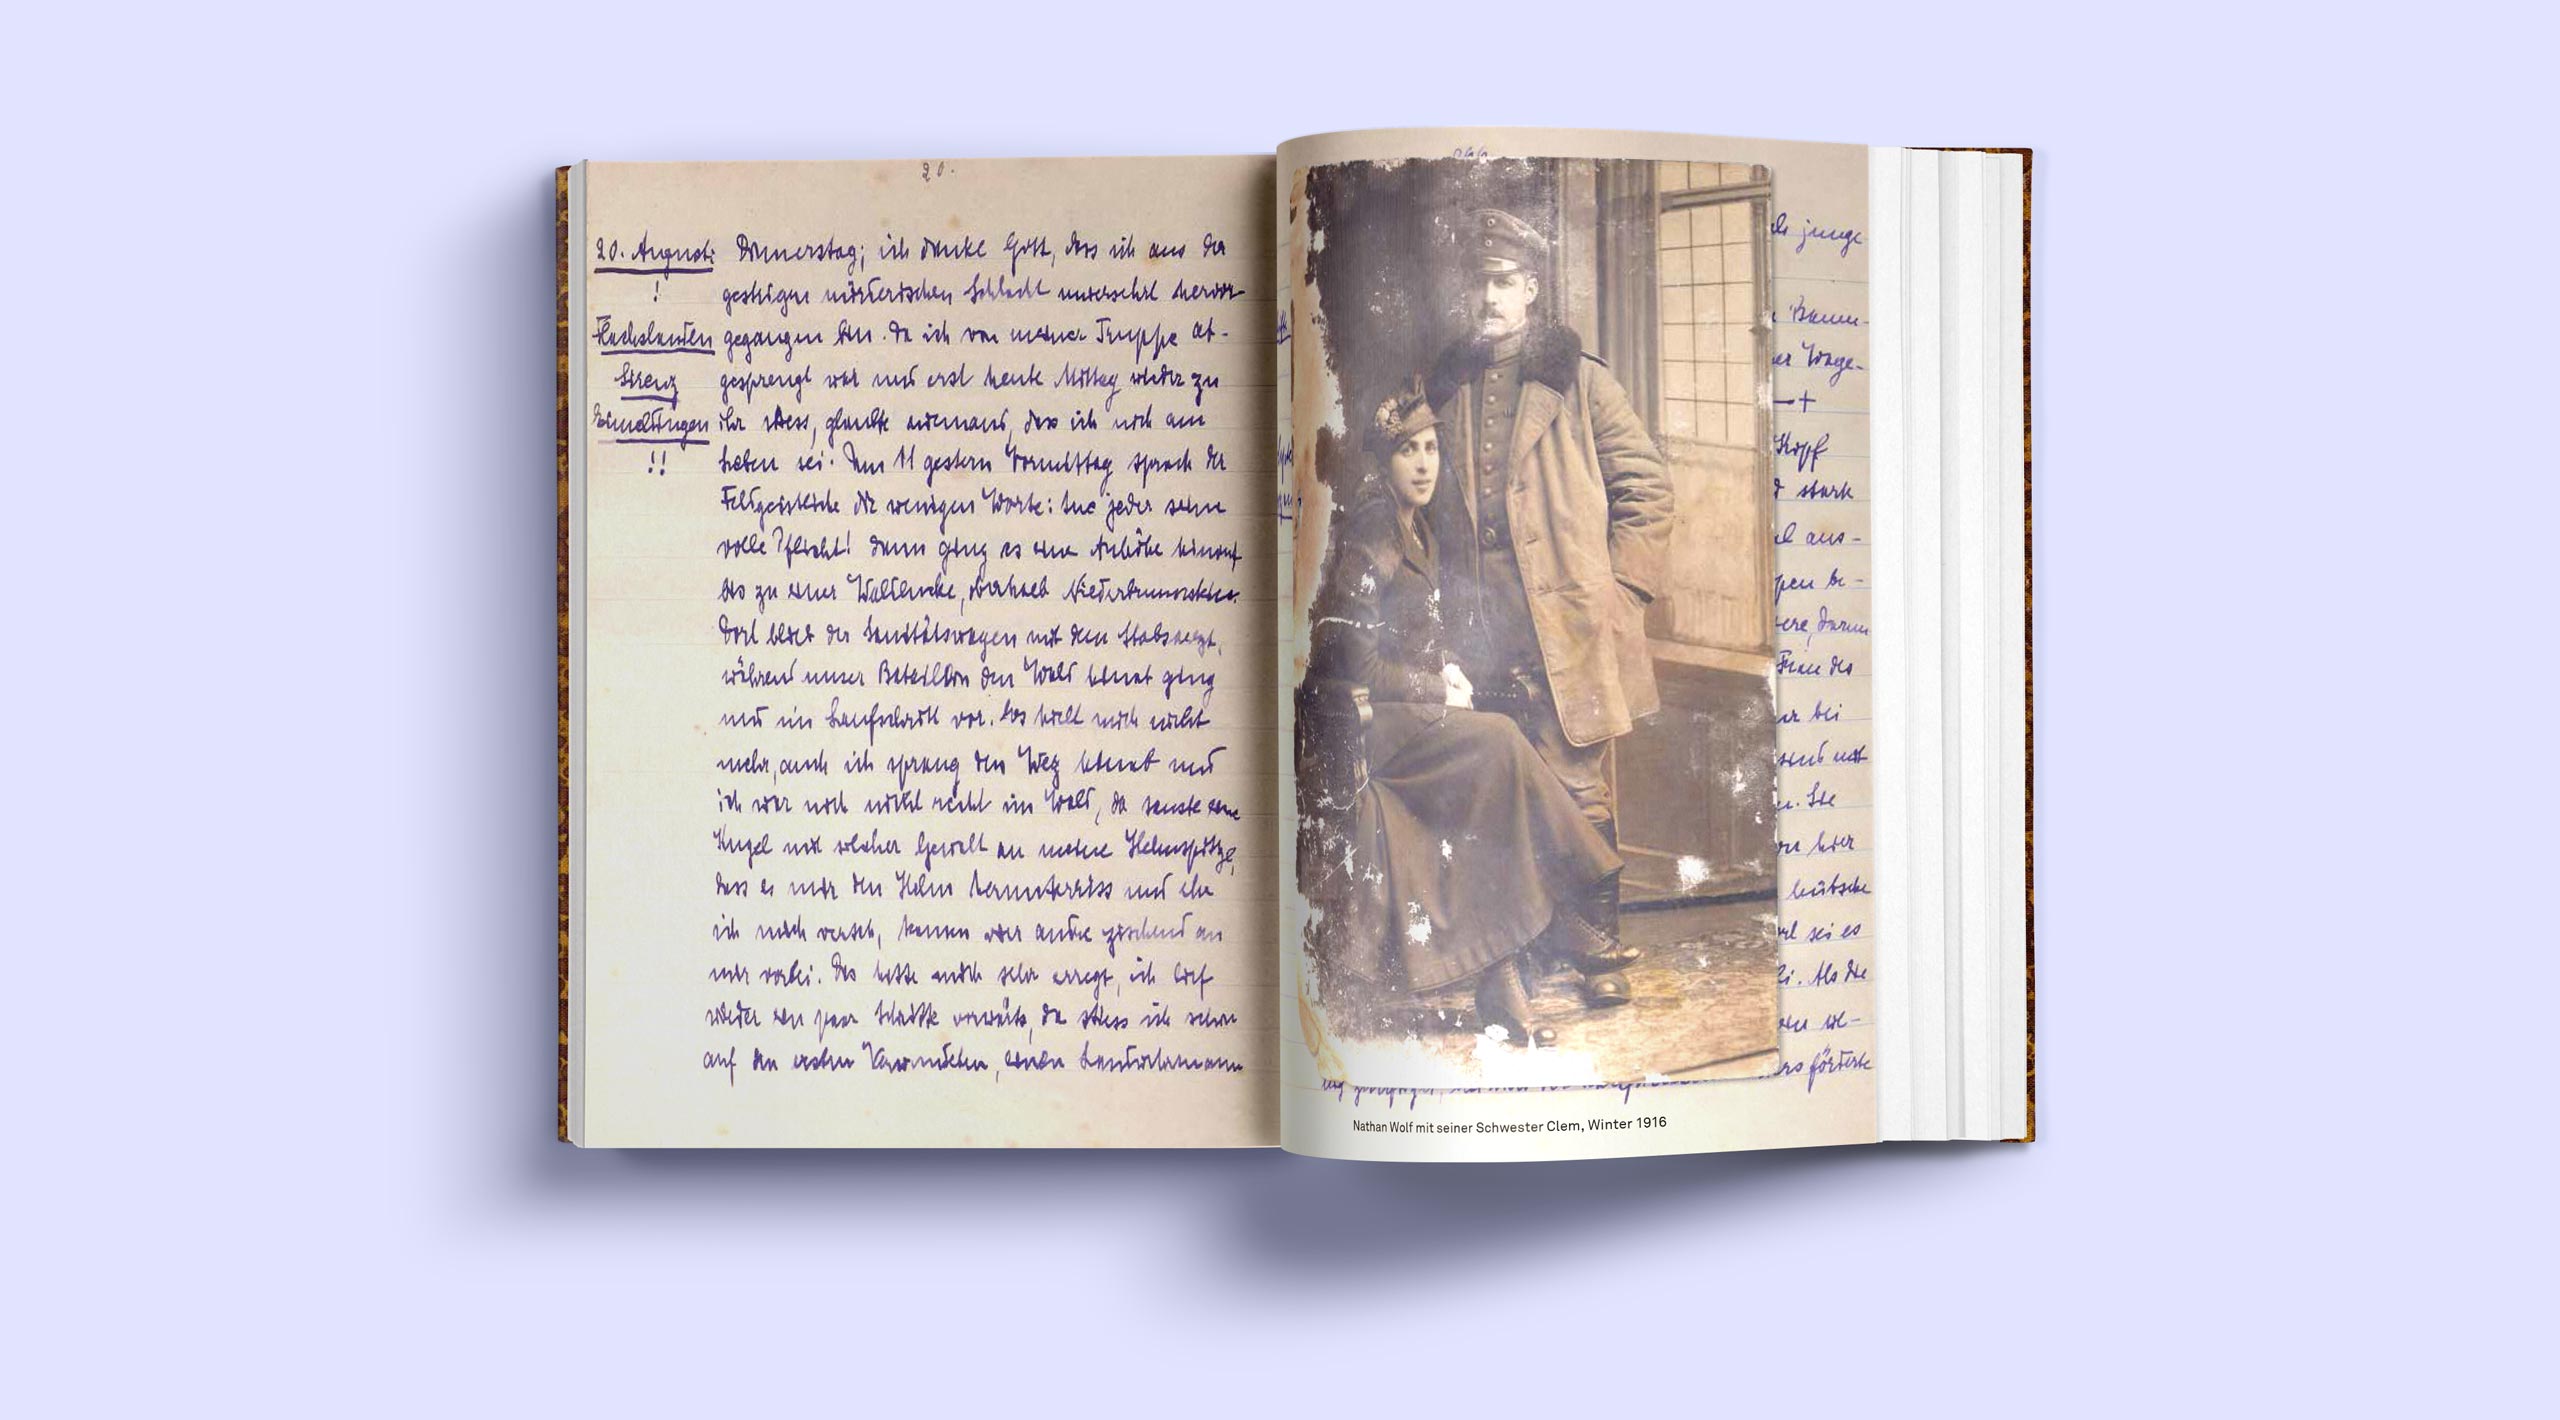 20.
20. August: Donnerstag; ich danke Gott, dass ich aus der
! gestrigen mörderischen Schlacht unversehrt hervor-
Flachslanden gegangen bin. Da ich von meiner Truppe ab-
Sierenz gesprengt war und erst heute Mittag wieder zu
ihr stiess, glaubte niemand, dass ich noch am
!! Leben sei. Um 11 gestern Vormittag sprach der
Feldgeistliche die wenigen Worte: tue jeder seine
volle Pflicht! Dann ging es eine Anhöhe hinauf
bis zu einer Waldecke, oberhalb
Dort blieb der Sanitätswagen mit dem Stabsarzt,
während unser Bataillon den Wald hinab ging
und im Laufschritt vor. Es hielt mich nicht
mehr, auch ich sprang den Weg hinab und
ich war noch nicht recht im Wald, da sauste eine
Kugel mit solcher Gewalt an meine Helmspitze,
dass es mir den Helm herunterriss und ehe
ich mich versah, kamen andre zischend an
mir vorbei. Das hatte mich sehr erregt, ich lief
wieder ein paar Schritte vorwärts, da stiess ich schon
auf den ersten Verwundeten, einen Landwehrmann
junge
Kopf
stark
aus-
be-
Frau des
bei
Sie
hier
hübsche
sei es
Als die
förderte
Nathan Wolf mit seiner Schwester Clem, Winter 1916